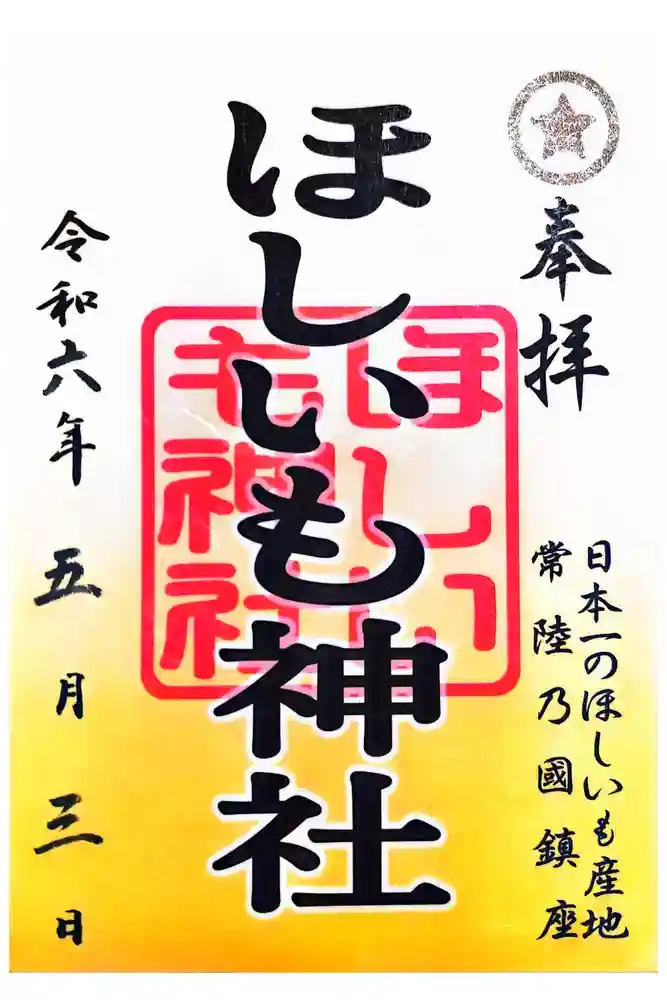 奉拝
日本一のほしいも産地
常陸乃國鎮座
ほしいも神社
ほしいも神社
令和六年 五月 三日